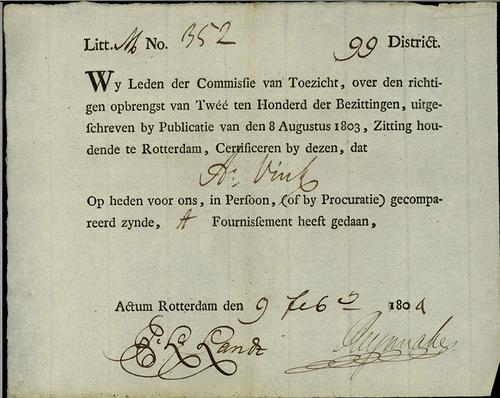 Litt. M No. 352 99 District.
Wy Leden der Commissie van Toezicht, over den richti-
gen opbrengst van Twéé ten Honderd der Bezittingen, uitge-
schreven by Publicatie van den 8 Augustus 1803, Zitting hou-
dende te Rotterdam, Certificeren by dezen, dat
As. Vink
Op heden voor ons, in Persoon, (of by Procuratie) gecompa-
reerd zynde, A Fournissement heeft gedaan,
Actum Rotterdam den 9 feb 1804